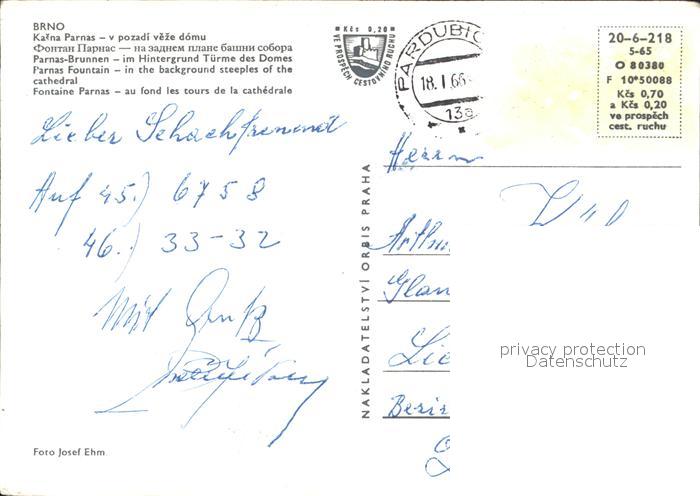 BRNO
Kašna Parnas – v pozadí věže dómu
Фонтан Парнас — на заднем плане башни собора
Parnas-Brunnen – im Hintergrund Türme des Domes
Parnas Fountain – in the background steeples of the
cathedral
Fontaine Parnas – au fond les tours de la cathédrale
Lieber Schachfreund
Auf 45.) 6758
46.) 33-32
Mit Gruß
Foto Josef Ehm
NAKLADATELSTVÍ ORBIS PRAHA
Kčs 0,20
VE PROSPĚCH CESTOVNÍHO RUCHU
PARDUBIC
18.I.66
13a
20-6-218
5-65
O 80380
F 10*50088
Kčs 0,70
a Kčs 0,20
ve prospěch
cest. ruchu
Herrn
Arthu
Glau
Lie
Bezir
privacy protection
Datenschutz